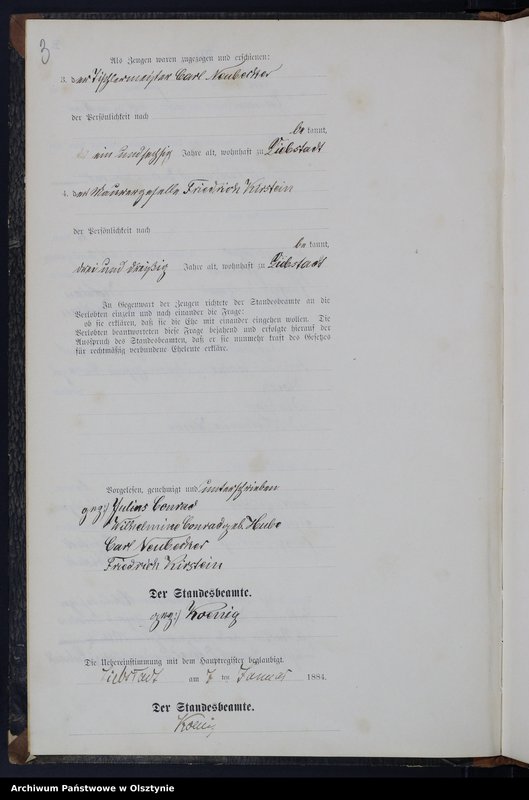 3
Als Zeugen waren zugezogen und erschienen:
3. der Tischlermeister Carl Neubecker
der Persönlichkeit nach
be kannt,
ein und sechzig Jahre alt, wohnhaft zu Liebstadt
4. der Maurergeselle Friedrich Kirstein
der Persönlichkeit nach
be kannt,
drei und dreißig Jahre alt, wohnhaft zu Liebstadt
In Gegenwart der Zeugen richtete der Standesbeamte an die
Verlobten einzeln und nach einander die Frage:
ob sie erklären, daß sie die Ehe mit einander eingehen wollen. Die
Verlobten beantworteten diese Frage bejahend und erfolgte hierauf der
Ausspruch des Standesbeamten, daß er sie nunmehr kraft des Gesetzes
für rechtmäßig verbundene Eheleute erkläre.
Vorgelesen, genehmigt und unterschrieben
gez:) Julius Conrad
Wilhelmine Conrad geb. Hube
Carl Neubecker
Friedrich Kirstein
Der Standesbeamte.
gez:) Koenig
Die Uebereinstimmung mit dem Hauptregister beglaubigt.
Liebstadt am 7 ten Januar 1884.
Der Standesbeamte.
Koenig
Archiwum Państwowe w Olsztynie